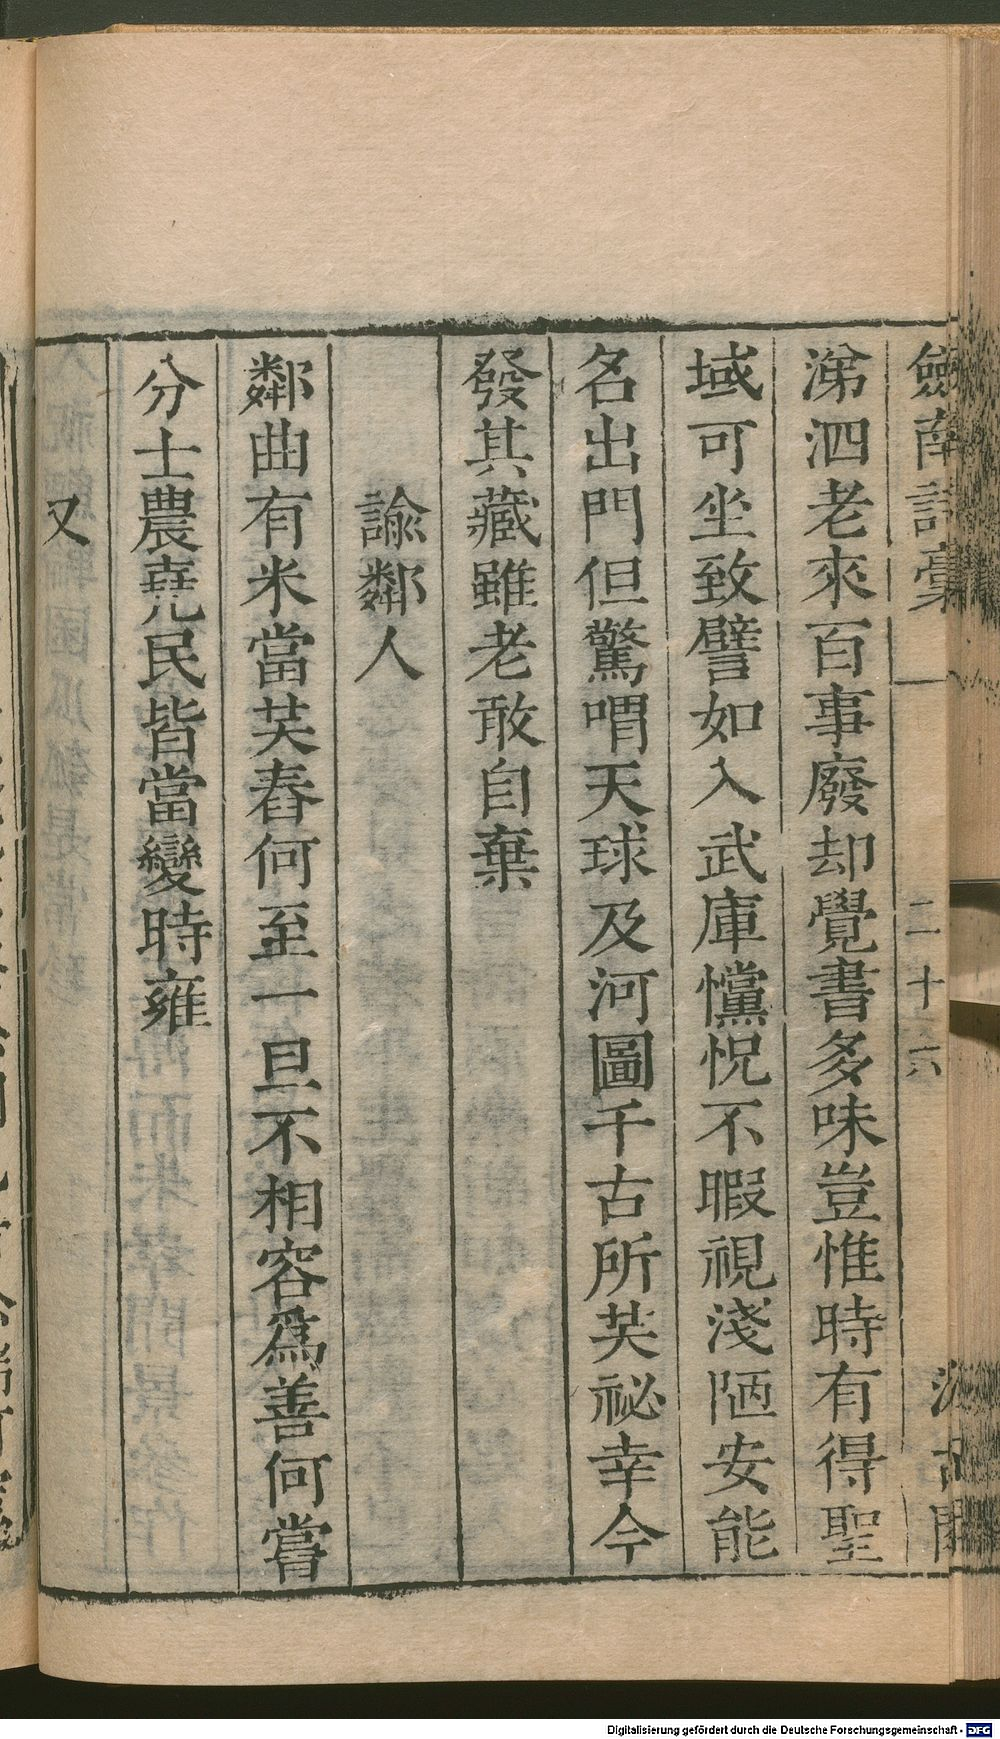 劒南詩稾 二十六 汲古閣
涕泗老來百事廢却覺書多味豈惟時有得聖
域可坐致譬如入武庫戃怳不暇視淺陋安能
名出門但驚喟天球及河圖千古所共祕幸今
發其藏雖老敢自棄
諭鄰人
鄰曲有米當共舂何至一旦不相容爲善何嘗
分士農堯民皆當變時雍
又
Digitalisierung gefördert durch die Deutsche Forschungsgemeinschaft - DFG